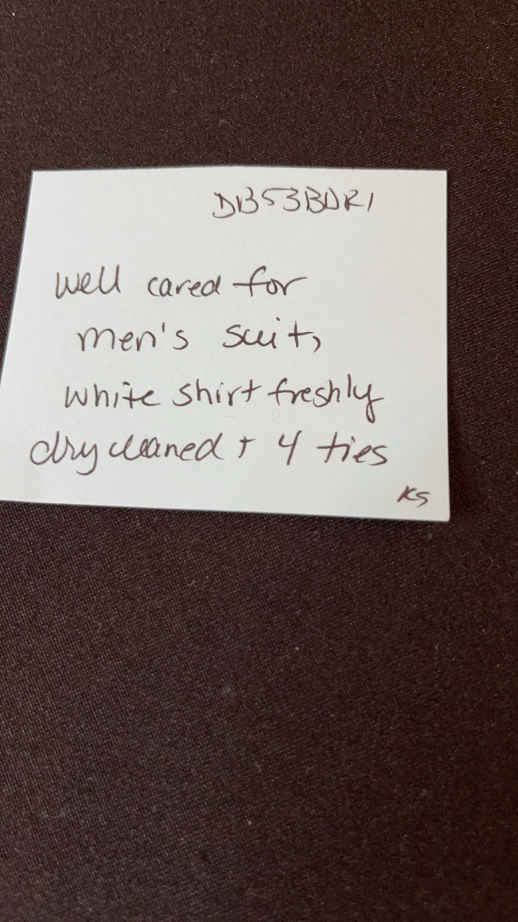 DB53BDR1
well cared for
men's suit,
white shirt freshly
dry cleaned + 4 ties
KS